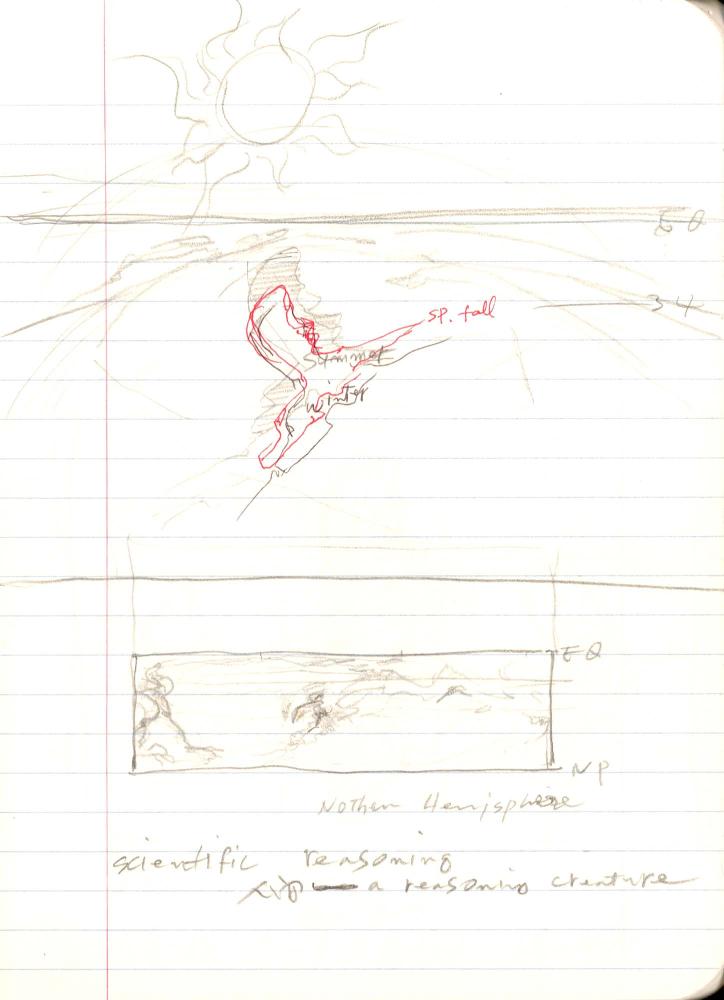 EQ
34
sp. fall
Summer
Winter
EQ
NP
Nothen Hemisphere
scientific reasoning
— a reasoning creature